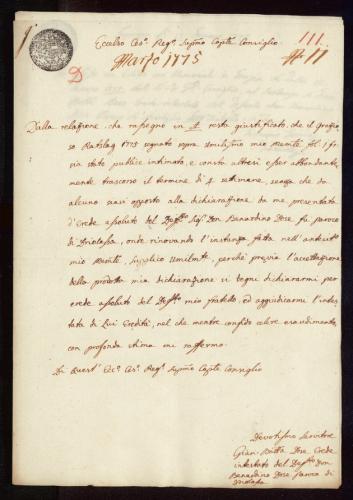 Eccelso Ces.o Reg.o Supmo Caple Consiglio
111.
Marzo 1775
N. 17
Dalla relazione, che rassegno in resta giustificato, che il
so Ratslag 1775 segnato sopra umilissimo mio fol. 1 fu
sia stato publice intimato, e consta altresi esser abbondante
mente trascorso il termine di 4 settimane, senza che da
alcuno siasi opposto alla dichiarazione da me presentata
d'Erede assoluto del Deffto Sig.r Don Bernardino Dose fu paroco
di Driolassa, onde rinovando l'instanza fatta nell'
mio supplico umilmte, perchè previa l'accettazione
della predetta mia dichiarazione si degni dichiararmi per
erede assoluto del Deffto mio fratello, ed aggiudicarmi l'inte
stata di Lui Eredità, nel che mentre confido celere esaudimento
con profonda stima mi raffermo.
Di Quest' Ecc.o Ces.o Reg.o Supmo Caple Consiglio
Devotissimo Servitore
Gian Batta Dose Erede
intestato del Deffto Don
Bernardino Dose Paroco di
Driolassa